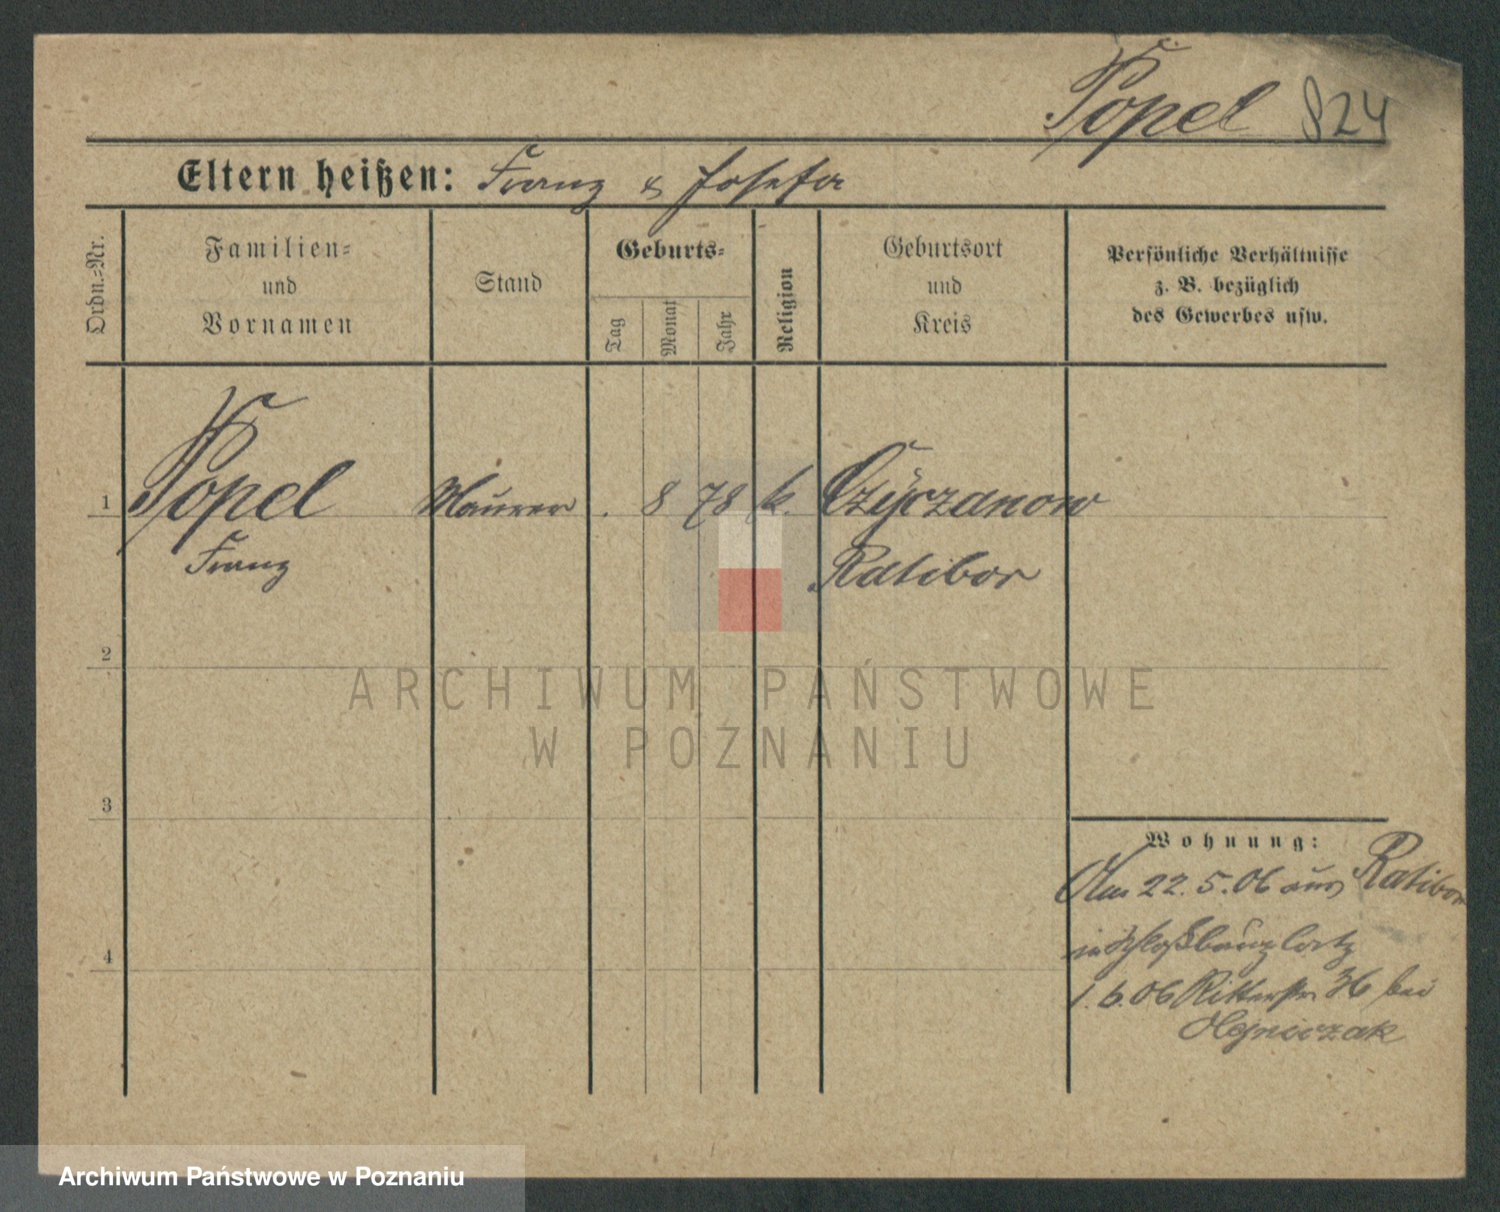 Popel 824
Eltern heißen: Franz & Josefa
Ordn.-Nr.
Familien-
und
Vornamen
Stand
Geburts-
Tag
Monat
Jahr
Religion
Geburtsort
und
Kreis
Persönliche Verhältnisse
z. B. bezüglich
des Gewerbes usw.
1 Popel Maurer . 8 78 k. Czyczanow
Franz Ratibor
2
3
4
Wohnung:
Am 22.5.06 aus Ratibor
in Schloßbauplatz
1.6.06 Ritterstr 36 bei
Olejniczak
ARCHIWUM PAŃSTWOWE
W POZNANIU
Archiwum Państwowe w Poznaniu